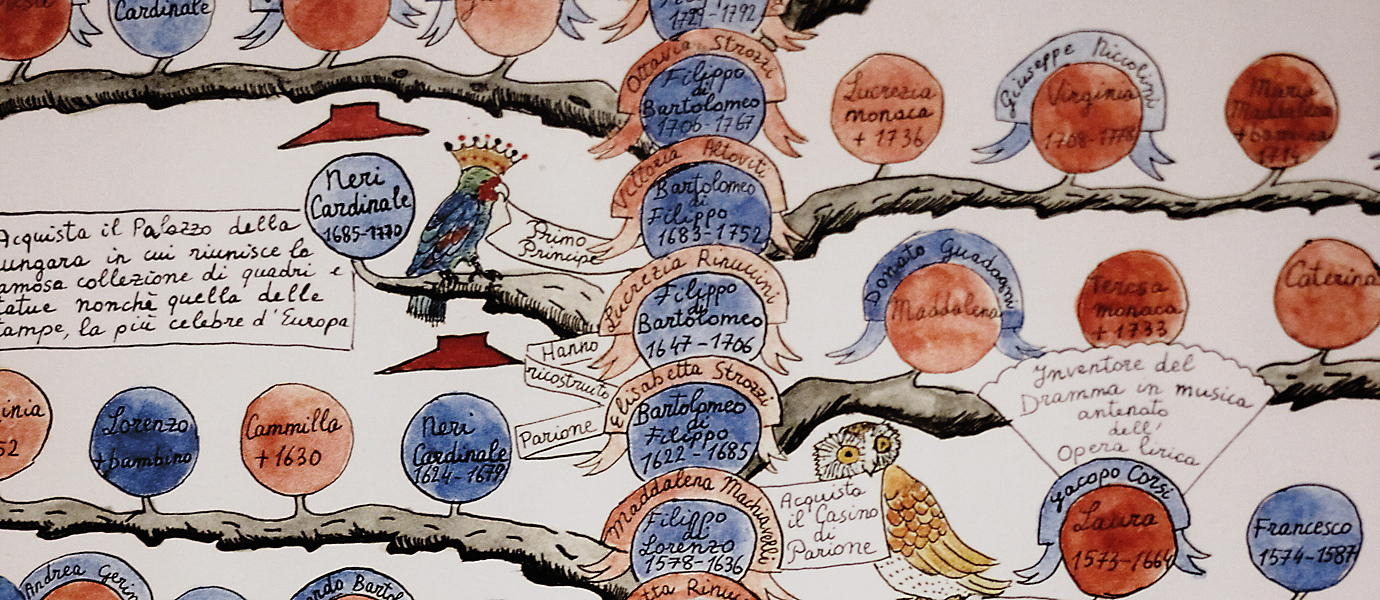 Cardinale
1721-1792
Ottavia Strozzi
Filippo
di
Bartolomeo
1706-1767
Lucrezia
monaca
+ 1736
Giuseppe Riccolini
Virginia
1708-1778
Maria
Maddalena
+ bambina
1714
Neri
Cardinale
1685-1770
Primo
Principe
Vettoria Altoviti
Bartolomeo
di
Filippo
1683-1752
Acquista il Palazzo della
ungara in cui riunisce la
amosa collezione di quadri e
tatue nonchè quella delle
tampe, la più celebre d'Europa
Lucrezia Rinuccini
Filippo
di
Bartolomeo
1647-1706
Donato Guadagni
Maddalena
Teresa
monaca
+ 1733
Caterina
Hanno
ricostruito
Parione
Elisabetta Strozzi
Bartolomeo
di
Filippo
1622-1685
Inventore del
Dramma in musica
antenato
dell'
Opera lirica
inia
52
Lorenzo
+ bambino
Cammilla
+ 1630
Neri
Cardinale
1624-1679
Acquista
il Casino
di
Parione
Maddalena Machiavelli
Filippo
di
Lorenzo
1578-1636
Jacopo Corsi
Laura
1573-1664
Francesco
1574-1587
Andrea Gerin
ardo Barto
tta Rinuc